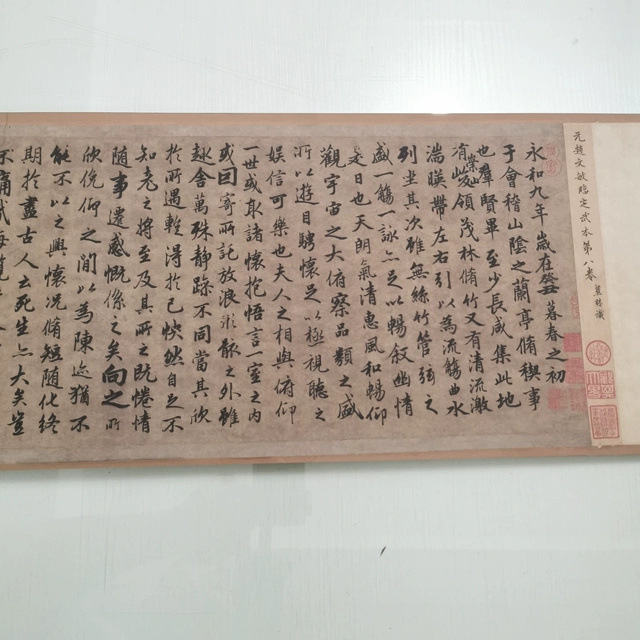 元趙文敏臨定武本第八卷
永和九年歲在癸丑暮春之初
于會稽山陰之蘭亭脩禊事
也羣賢畢至少長咸集此地
有崇山峻領茂林脩竹又有清流激
湍暎帶左右引以為流觴曲水
列坐其次雖無絲竹管弦之
盛一觴一詠亦足以暢敘幽情
是日也天朗氣清惠風和暢仰
觀宇宙之大俯察品類之盛
所以遊目騁懷足以極視聽之
娛信可樂也夫人之相與俯仰
一世或取諸懷抱悟言一室之內
或因寄所託放浪形骸之外雖
趣舍萬殊靜躁不同當其欣
於所遇蹔得於己快然自足不
知老之將至及其所之既惓情
隨事遷感慨係之矣向之所
欣俛仰之間以為陳迹猶不
能不以之興懷況脩短隨化終
期於盡古人云死生亦大矣豈
不痛哉每